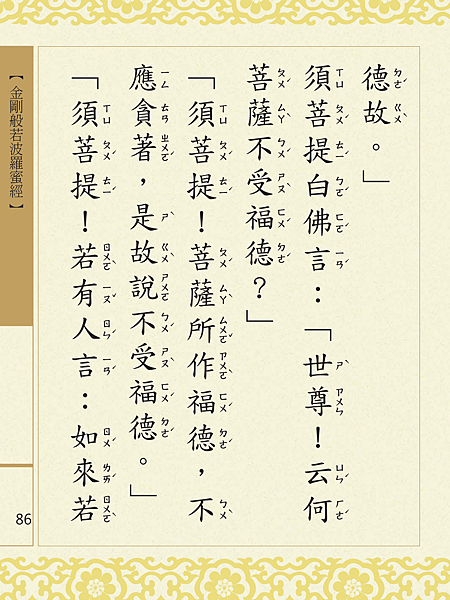 德故。」
須菩提白佛言：「世尊！云何
菩薩不受福德？」
「須菩提！菩薩所作福德，不
應貪著，是故說不受福德。」
「須菩提！若有人言：如來若
【金剛般若波羅蜜經】
86